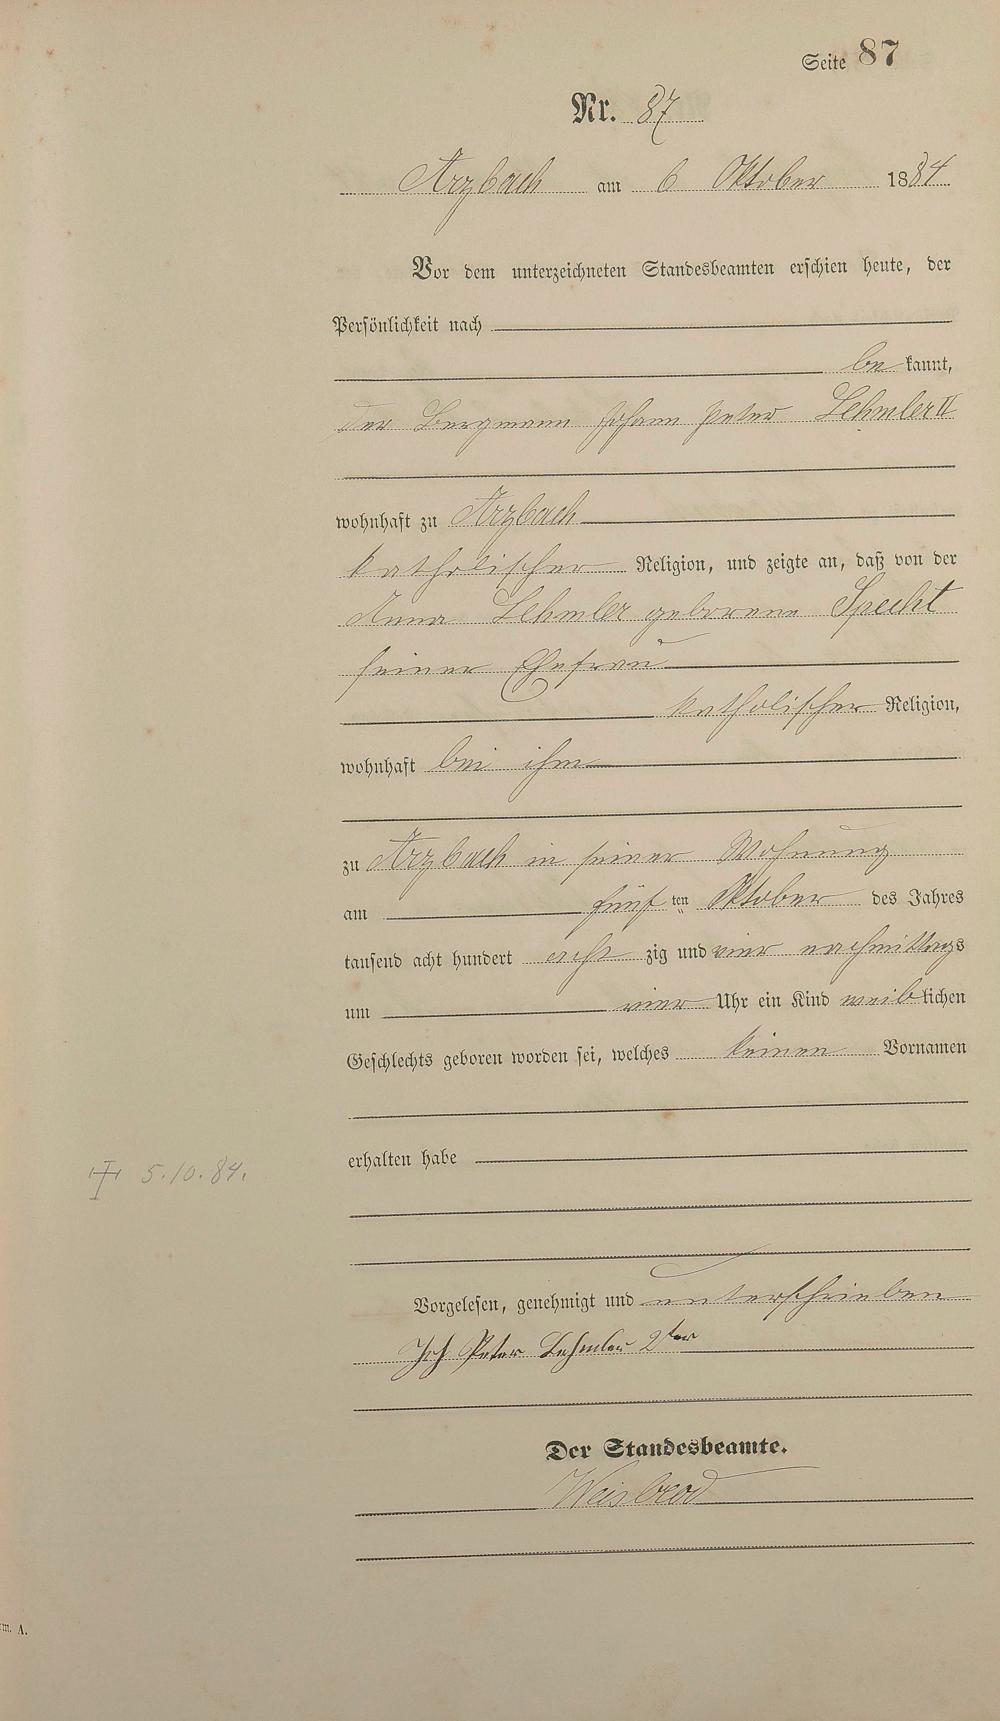 Seite 87
Nr. 87
Arzbach am 6 Oktober 1884
Vor dem unterzeichneten Standesbeamten erschien heute, der
Persönlichkeit nach
be kannt,
der Bergmann Johann Peter Lehmler II
wohnhaft zu Arzbach
katholischer Religion, und zeigte an, daß von der
Anna Lehmler geborene Specht
seiner Ehefrau
katholischer Religion,
wohnhaft bei ihm
zu Arzbach in seiner Wohnung
am fünf ten Oktober des Jahres
tausend acht hundert acht zig und vier nachmittags
um vier Uhr ein Kind weiblichen
Geschlechts geboren worden sei, welches keinen Vornamen
erhalten habe
† 5.10.84.
Vorgelesen, genehmigt und unterschrieben
Joh Peter Lehmler 2ter
Der Standesbeamte.
Weisbrod
m. A.